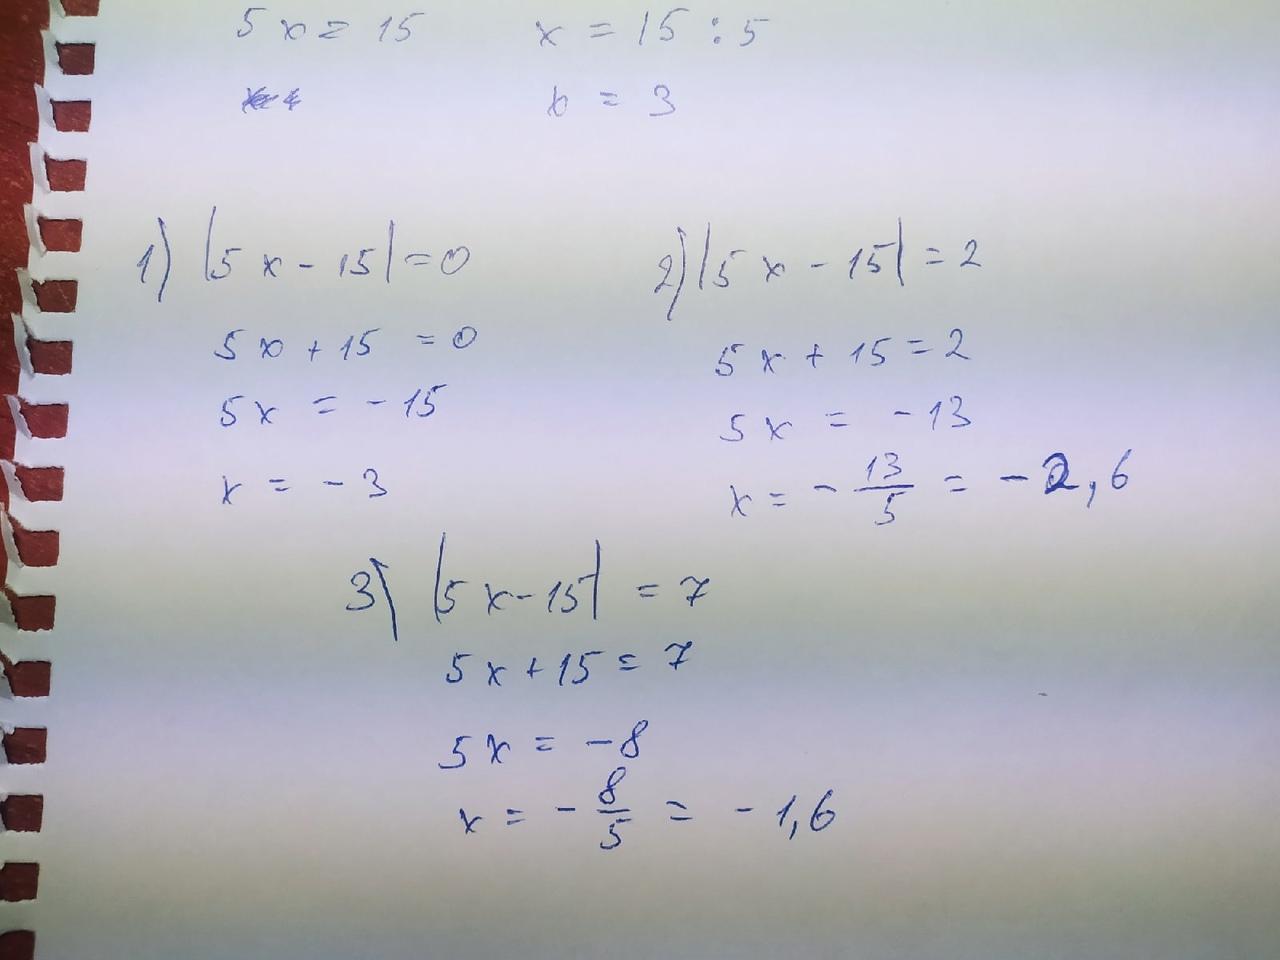 5x = 15
x = 15 : 5
x = 3
1) |5x - 15| = 0
5x + 15 = 0
5x = - 15
x = - 3
2) |5x - 15| = 2
5x + 15 = 2
5x = - 13
x = - 13/5 = - 2,6
3) |5x - 15| = 7
5x + 15 = 7
5x = - 8
x = - 8/5 = - 1,6